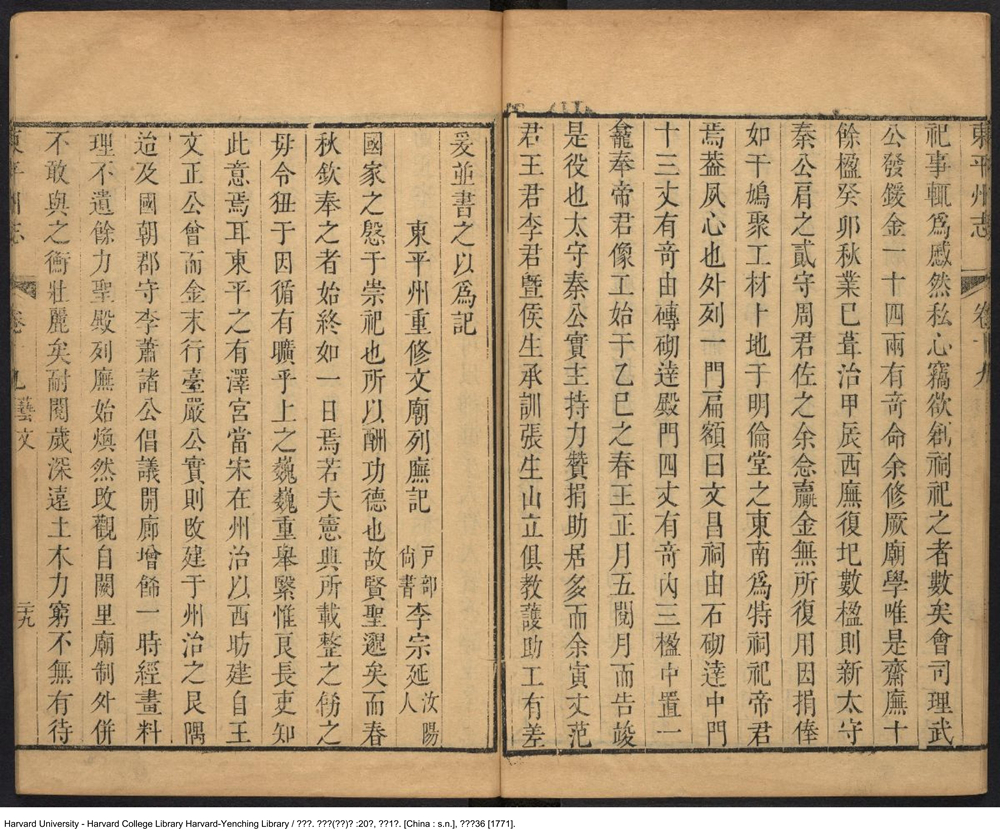 東平州志 卷十九
祀事輒爲慼然私心竊欲創祠祀之者數矣會司理武
公發鍰金一十四兩有奇命余修厥廟學唯是齋廡十
餘楹癸卯秋業已葺治甲辰西廡復圮數楹則新太守
秦公肩之貳守周君佐之余念贏金無所復用因捐俸
如干鳩聚工材卜地于明倫堂之東南爲特祠祀帝君
焉葢夙心也外列一門扁額曰文昌祠由石砌達中門
十三丈有奇由磚砌達殿門四丈有奇內三楹中置一
龕奉帝君像工始于乙巳之春王正月五閱月而告竣
是役也太守秦公實主持力贊捐助居多而余寅丈范
君王君李君暨侯生承訓張生山立俱教護助工有差
爰並書之以爲記
東平州重修文廟列廡記 戸部尚書李宗延汝陽人
國家之慇于崇祀也所以酬功德也故賢聖邈矣而春
秋欽奉之者始終如一日焉若夫憲典所載整之飭之
毋令狃于因循有曠乎上之巍巍重舉繄惟良長吏知
此意焉耳東平之有澤宮當宋在州治以西昉建自王
文正公曾而金末行臺嚴公實則改建于州治之艮隅
迨及國朝郡守李蕭諸公倡議開廊增飾一時經畫料
理不遺餘力聖殿列廡始煥然改觀自闕里廟制外併
不敢與之衡壯麗矣耐閱歲深遠土木力窮不無有待
東平州志 卷十九 藝文 二十九
Harvard University - Harvard College Library Harvard-Yenching Library / ???. ???(??)? :20?, ??1?. [China : s.n.], ???36 [1771].